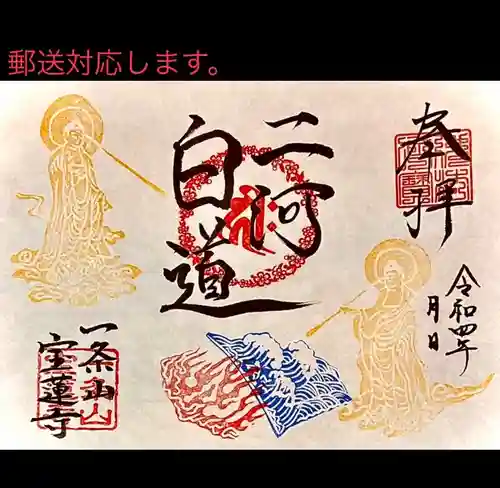 郵送対応します。
奉拝
令和四年
月日
二河
白道
一条山
宝蓮寺